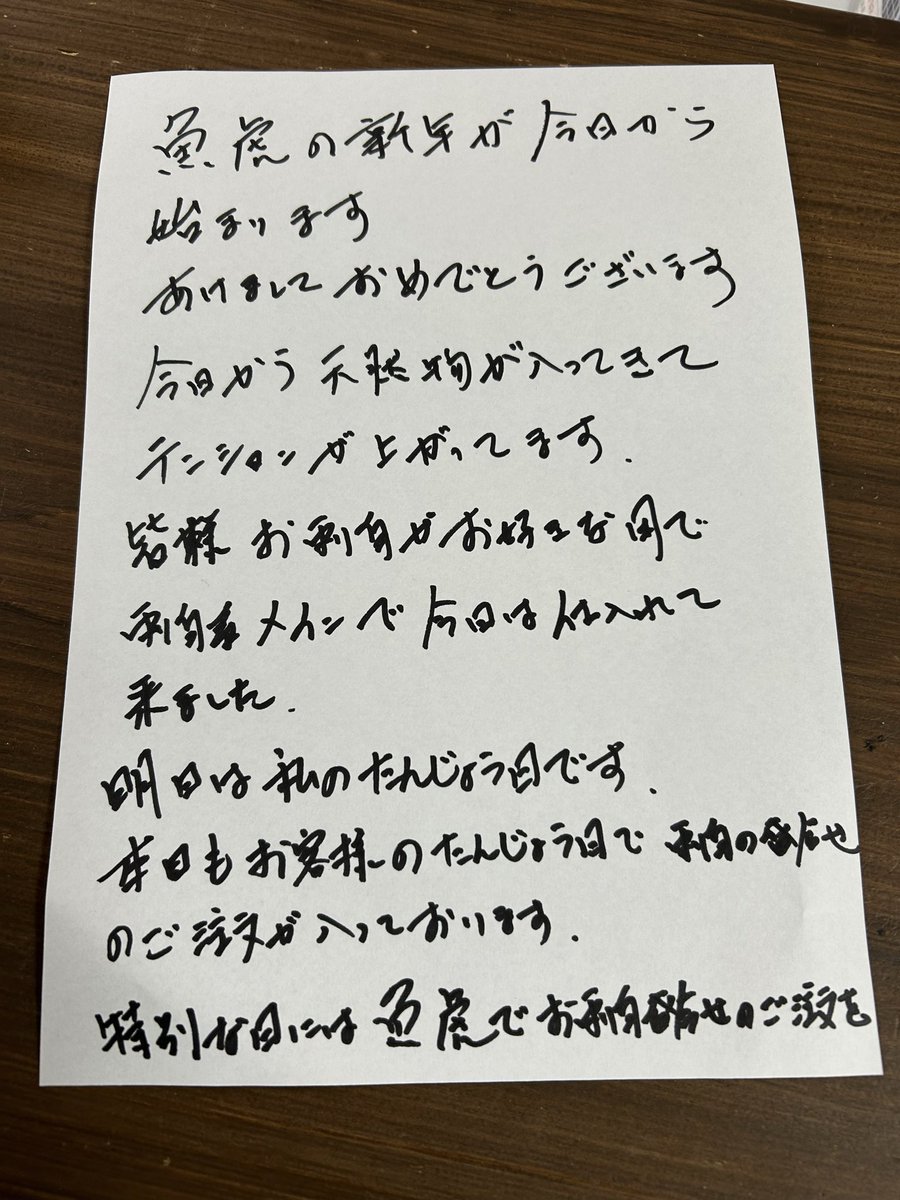 魚虎の新年が今日から
始まります
あけましておめでとうございます
今日から天然物が入ってきて
テンションが上がってます.
皆様お刺身がお好きな用で
刺身をメインで今日は仕入れて
来ました.
明日は私のたんじょう日です.
本日もお客様のたんじょう日で刺身の盛合せ
のご注文が入っております.
特別な日には魚虎でお刺身盛合せのご注文を